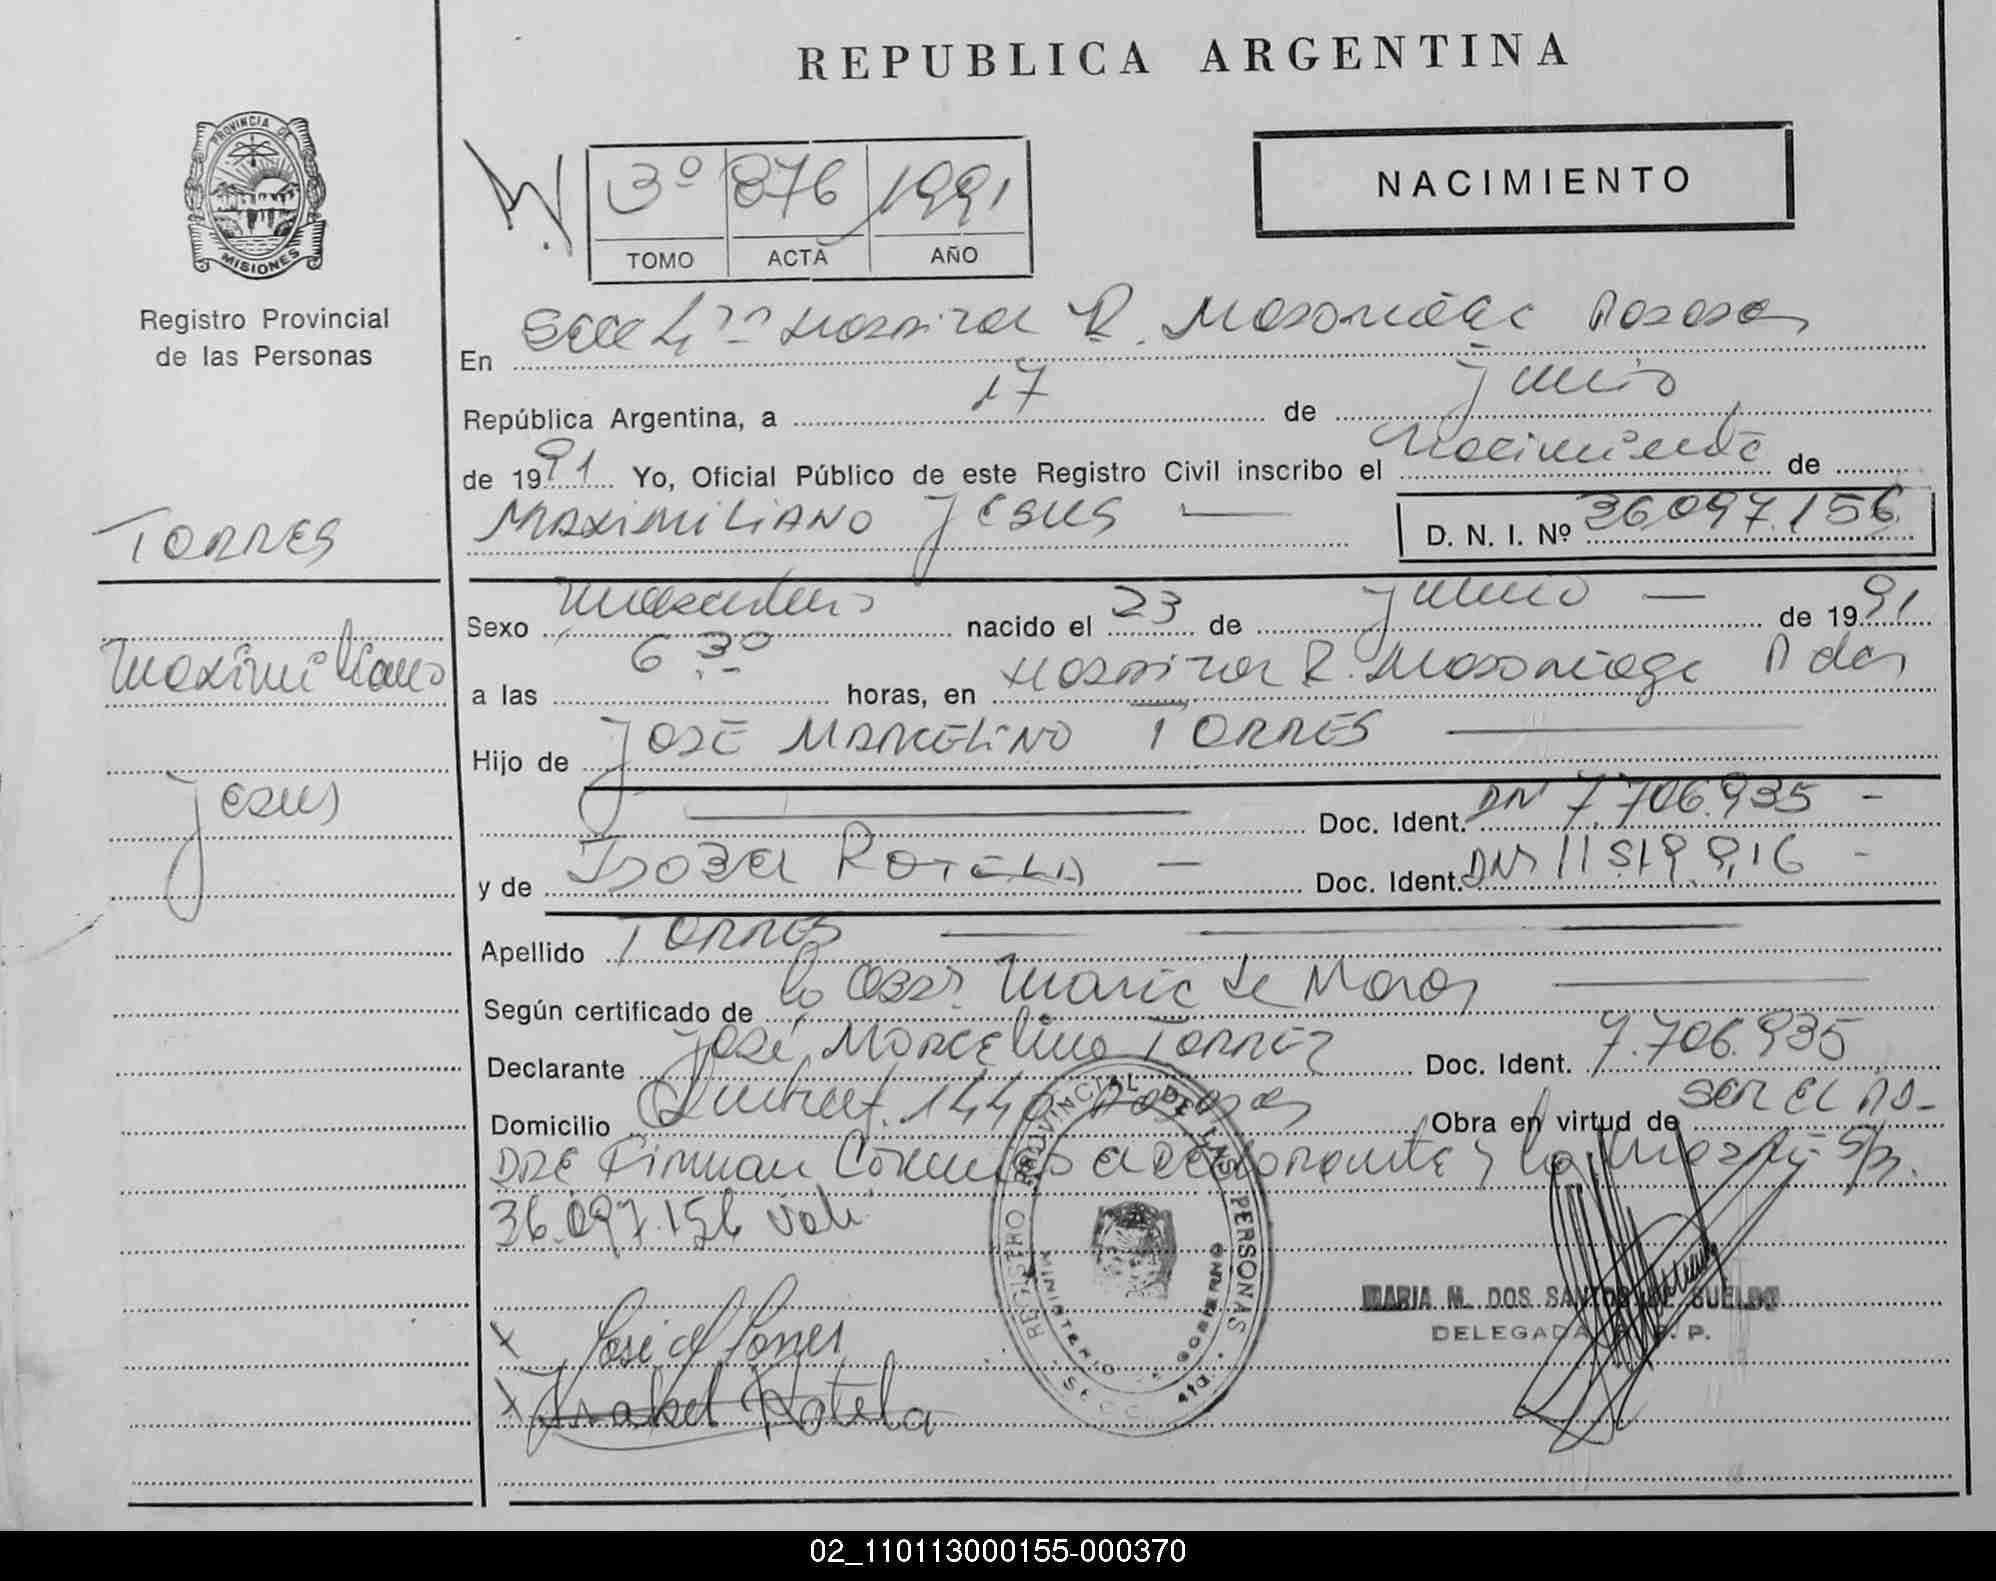 REPUBLICA ARGENTINA
PROVINCIA DE
MISIONES
Registro Provincial
de las Personas
NACIMIENTO
3º 876 1991
TOMO ACTA AÑO
En Secc 4ta Hospital R. Madariaga Posadas
República Argentina, a 17 de Junio
de 1991 Yo, Oficial Público de este Registro Civil inscribo el Nacimiento de
MAXIMILIANO JESUS
D. N. I. Nº 36.097.156
TORRES
Maximiliano
Jesus
Sexo Masculino nacido el 23 de Junio de 1991
a las 6 30 horas, en Hospital R. Madariaga Pdas
Hijo de JOSE MARCELINO TORRES
Doc. Ident. DNI 7.706.935
y de Isabel ROTELA Doc. Ident. DNI 11.519.916
Apellido TORRES
Según certificado de la Obst. Maria de
Declarante José Marcelino TORRES Doc. Ident. 7.706.935
Domicilio 1440 Posadas Obra en virtud de ser el pa-
dre Firman Conmigo el declarante y la madre
36.097.156 vale
José M Torres
Isabel Rotela
REGISTRO PROVINCIAL DE LAS PERSONAS
MINISTERIO DE GOBIERNO
4ta.
MARIA M. DOS SANTOS DE SUELDO
DELEGADA R. P. P.
02_110113000155-000370